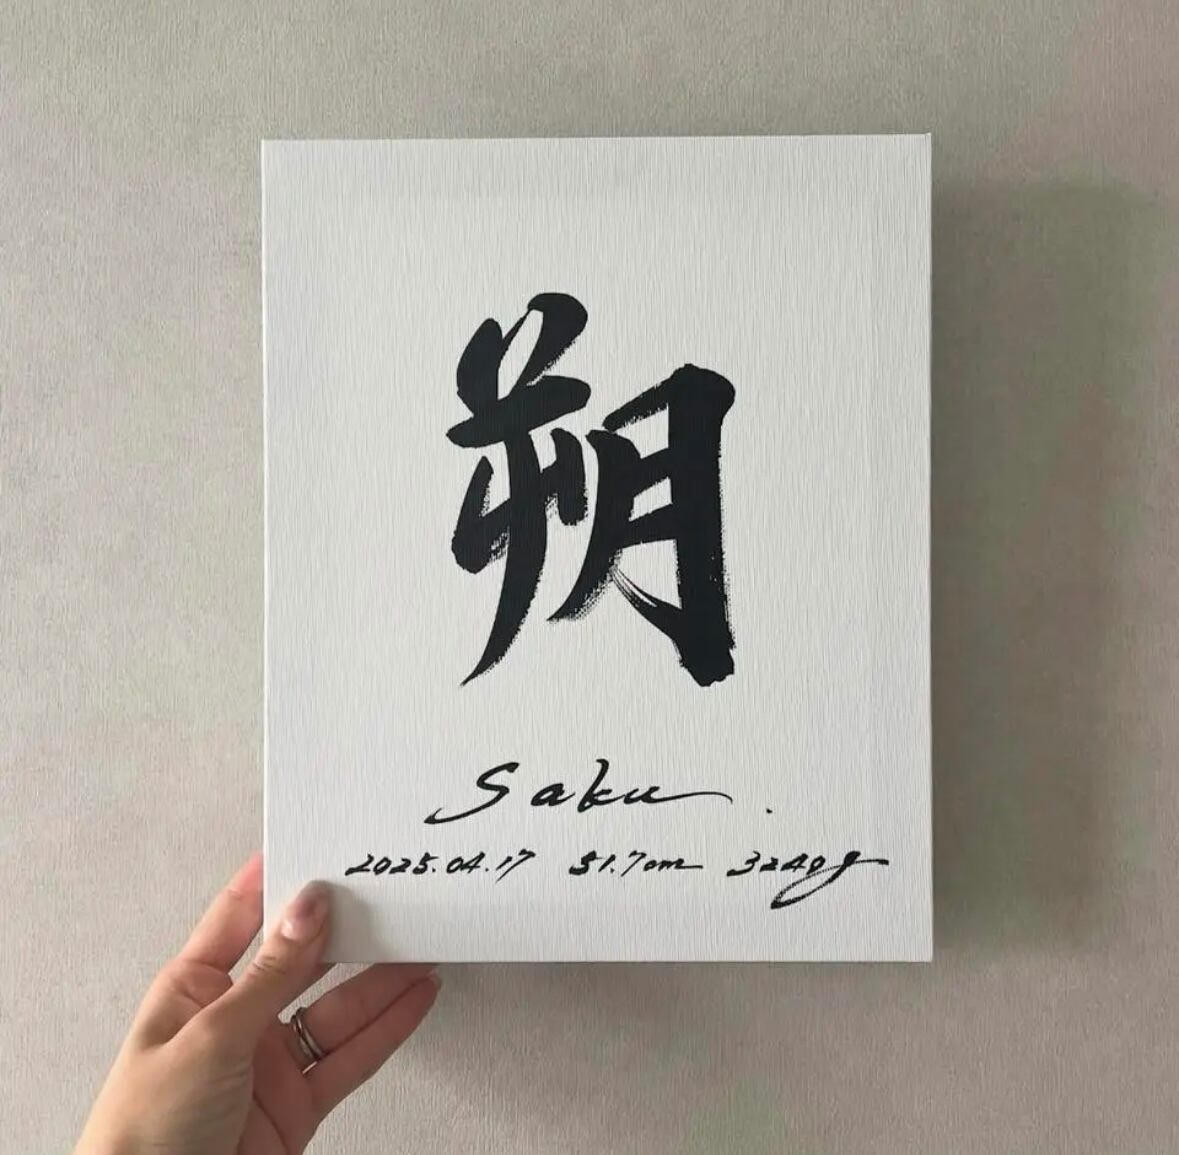 朔
Saku.
2025.04.17 51.7cm 3240g